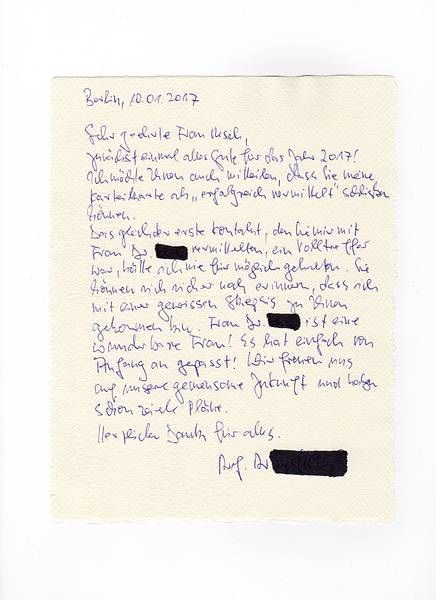 Berlin, 10.01.2017
Sehr geehrte Frau
zunächst einmal alles Gute für das Jahr 2017!
Ich möchte Ihnen auch mitteilen, dass Sie meine
Karteikarte als „erfolgreich vermittelt" schließen
können.
Das gleich der erste Kontakt, den Sie mir mit
Frau Dr. vermittelten, ein Volltreffer
war, hätte ich nie für möglich gehalten. Sie
können sich sicher noch erinnern, dass ich
mit einer gewissen Skepsis zu Ihnen
gekommen bin. Frau Dr. ist eine
wunderbare Frau! Es hat einfach von
Anfang an gepasst! Wir freuen uns
auf unsere gemeinsame Zukunft und haben
schon viele Pläne.
Herzlichen Dank für alles.
Prof. Dr